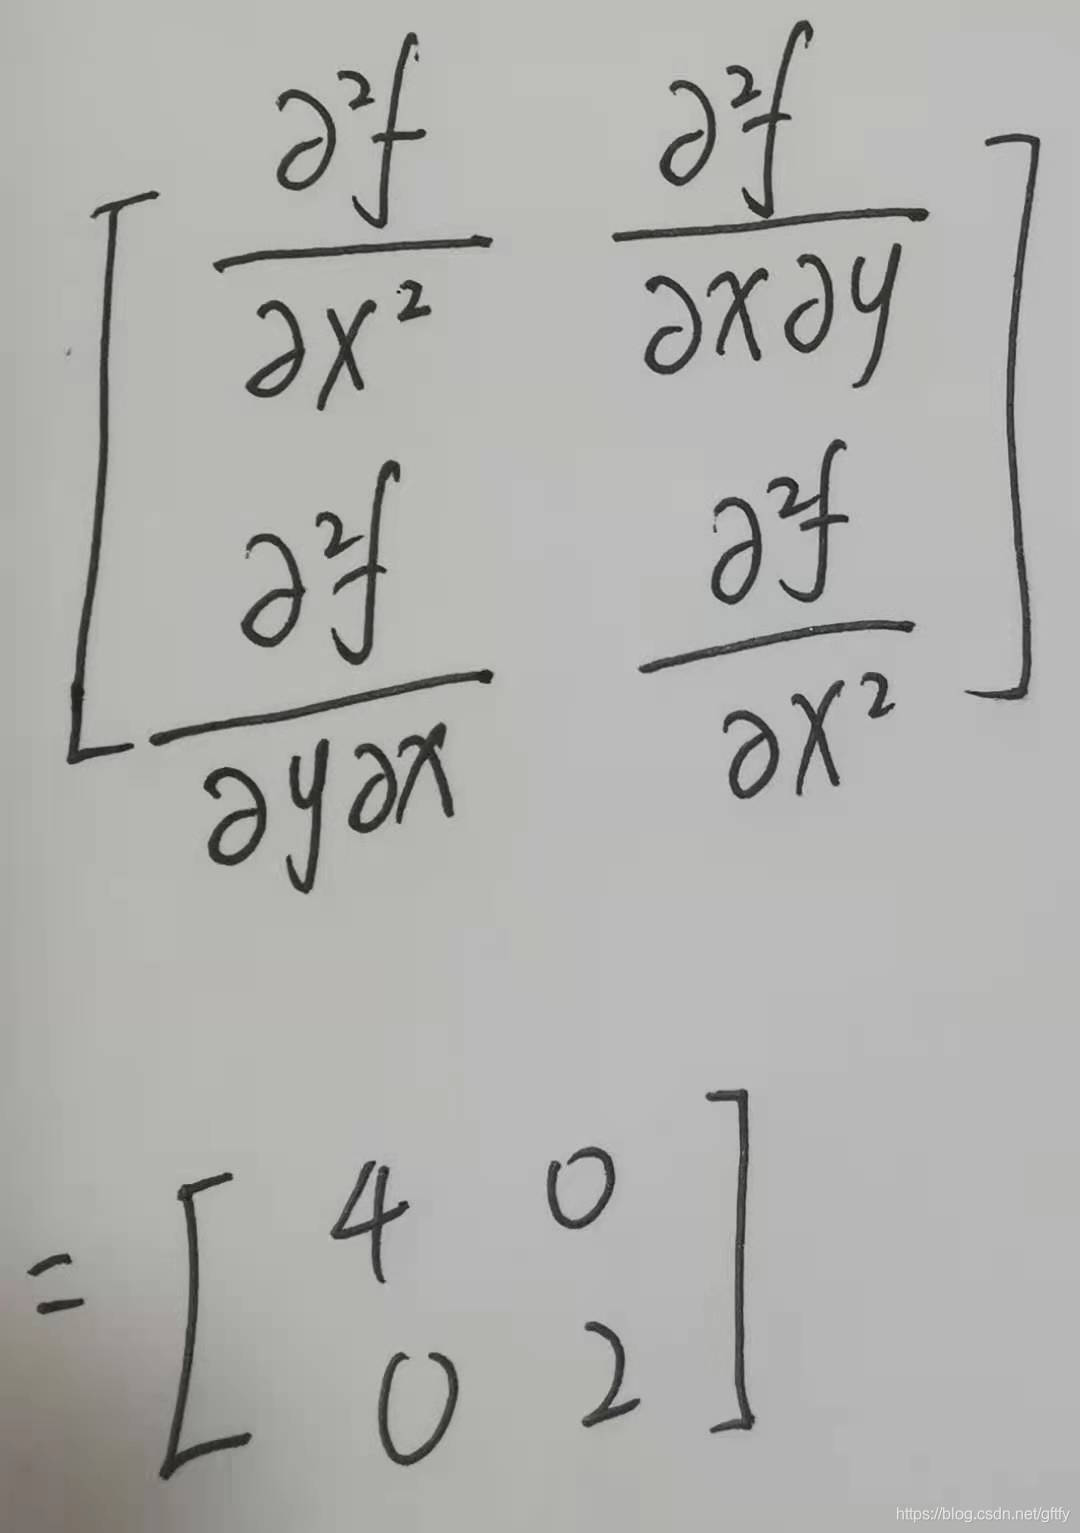 [ ∂²f/∂x² ∂²f/∂x∂y ]
[ ∂²f/∂y∂x ∂²f/∂x² ]
= [ 4 0 ]
[ 0 2 ]
https://blog.csdn.net/gftfy